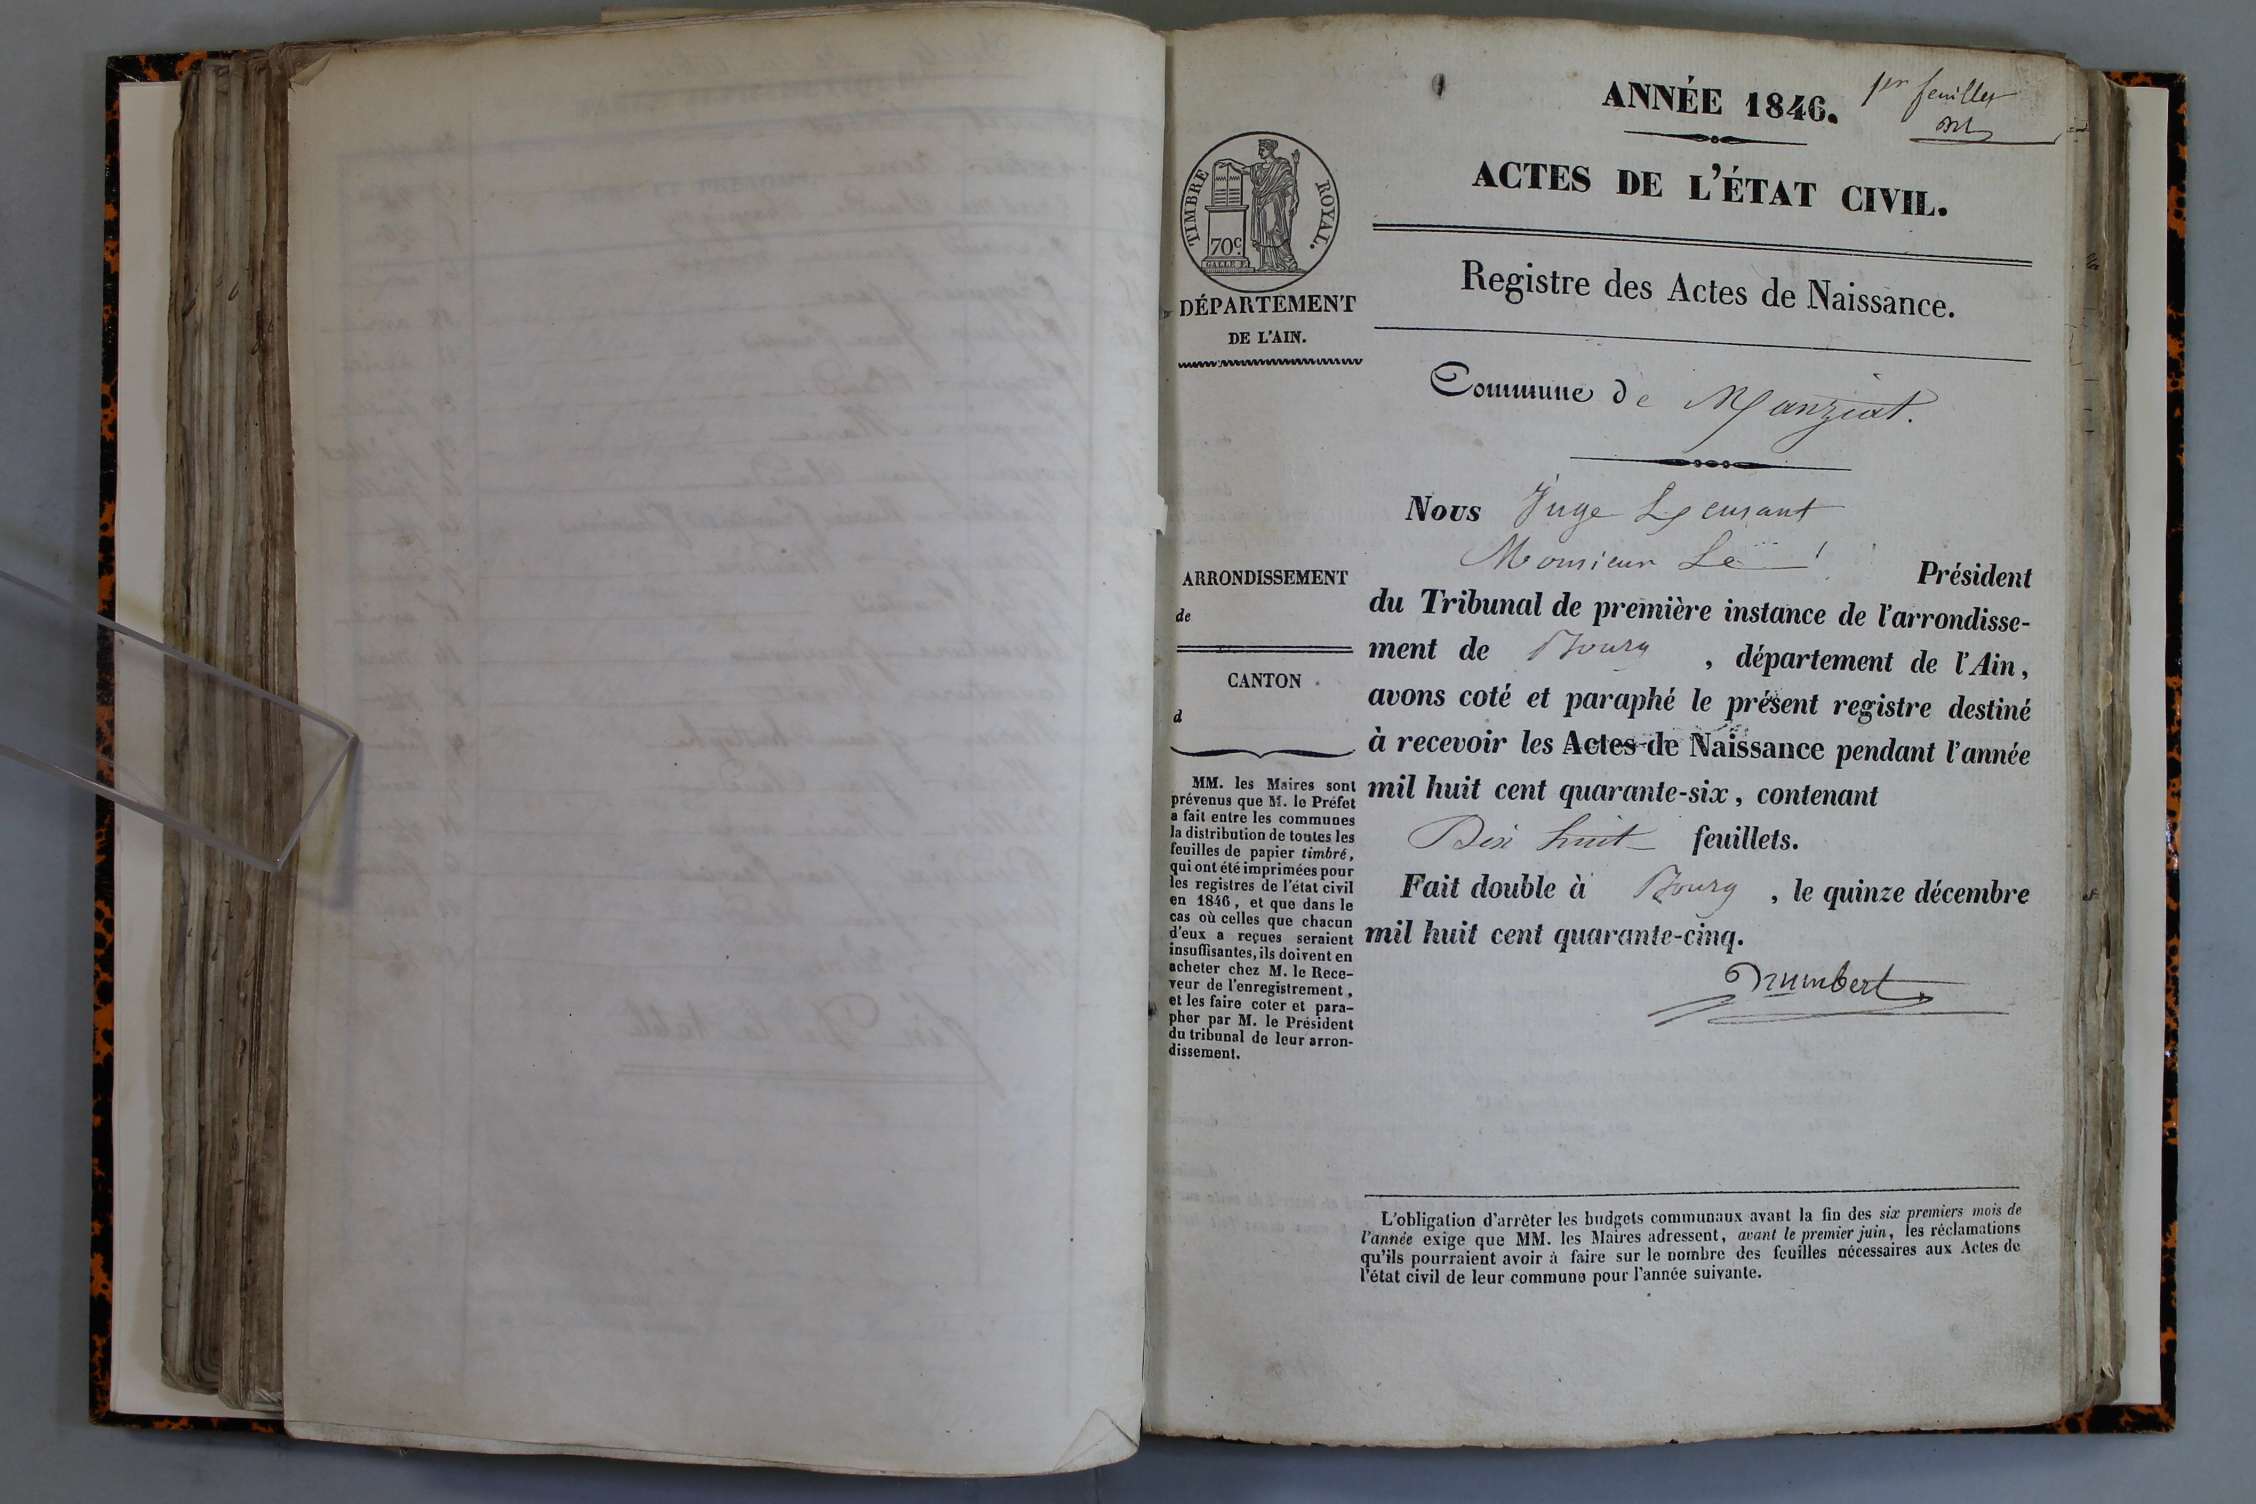 ANNÉE 1846.
1er feuillet
ACTES DE L'ÉTAT CIVIL.
TIMBRE ROYAL.
70c
GALLE F.
Registre des Actes de Naissance.
DÉPARTEMENT
DE L'AIN.
Commune de Manziat.
Nous Juge
Monsieur Le Président
ARRONDISSEMENT
de
CANTON
d
du Tribunal de première instance de l'arrondisse-
ment de Bourg, département de l'Ain,
avons coté et paraphé le présent registre destiné
à recevoir les Actes de Naissance pendant l'année
mil huit cent quarante-six, contenant
Dix huit feuillets.
Fait double à Bourg, le quinze décembre
mil huit cent quarante-cinq.
MM. les Maires sont
prévenus que M. le Préfet
a fait entre les communes
la distribution de toutes les
feuilles de papier timbré,
qui ont été imprimées pour
les registres de l'état civil
en 1846, et que dans le
cas où celles que chacun
d'eux a reçues seraient
insuffisantes, ils doivent en
acheter chez M. le Rece-
veur de l'enregistrement,
et les faire coter et para-
pher par M. le Président
du tribunal de leur arron-
dissement.
L'obligation d'arrêter les budgets communaux avant la fin des six premiers mois de
l'année exige que MM. les Maires adressent, avant le premier juin, les réclamations
qu'ils pourraient avoir à faire sur le nombre des feuilles nécessaires aux Actes de
l'état civil de leur commune pour l'année suivante.